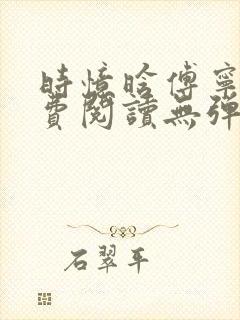 時憶晗傅寧
費閱讀無彈
石翠平